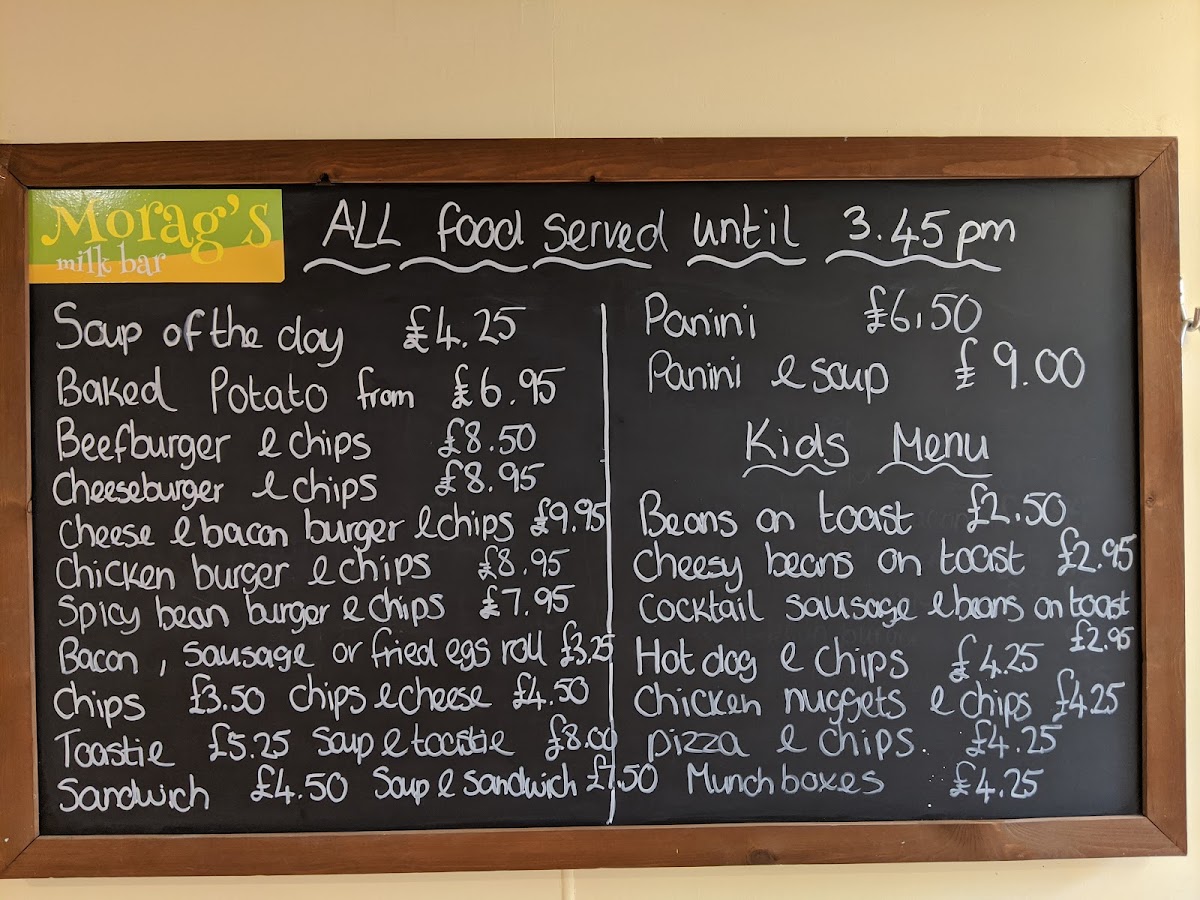 Morag's
milk bar
ALL food served until 3.45pm
Soup of the day £4.25
Baked Potato from £6.95
Beefburger & chips £8.50
Cheeseburger & chips £8.95
Cheese & bacon burger & chips £9.95
Chicken burger & chips £8.95
Spicy bean burger & chips £7.95
Bacon, sausage or fried egs roll £3.25
Chips £3.50 chips & cheese £4.50
Toastie £5.25 Soup & toastie £8.00
Sandwich £4.50 Soup & sandwich £7.50
Panini £6.50
Panini & soup £9.00
Kids Menu
Beans on toast £2.50
Cheesy beans on toast £2.95
Cocktail sausage & beans on toast
£2.95
Hot dog & chips £4.25
Chicken nuggets & chips £4.25
pizza & chips £4.25
Munch boxes £4.25